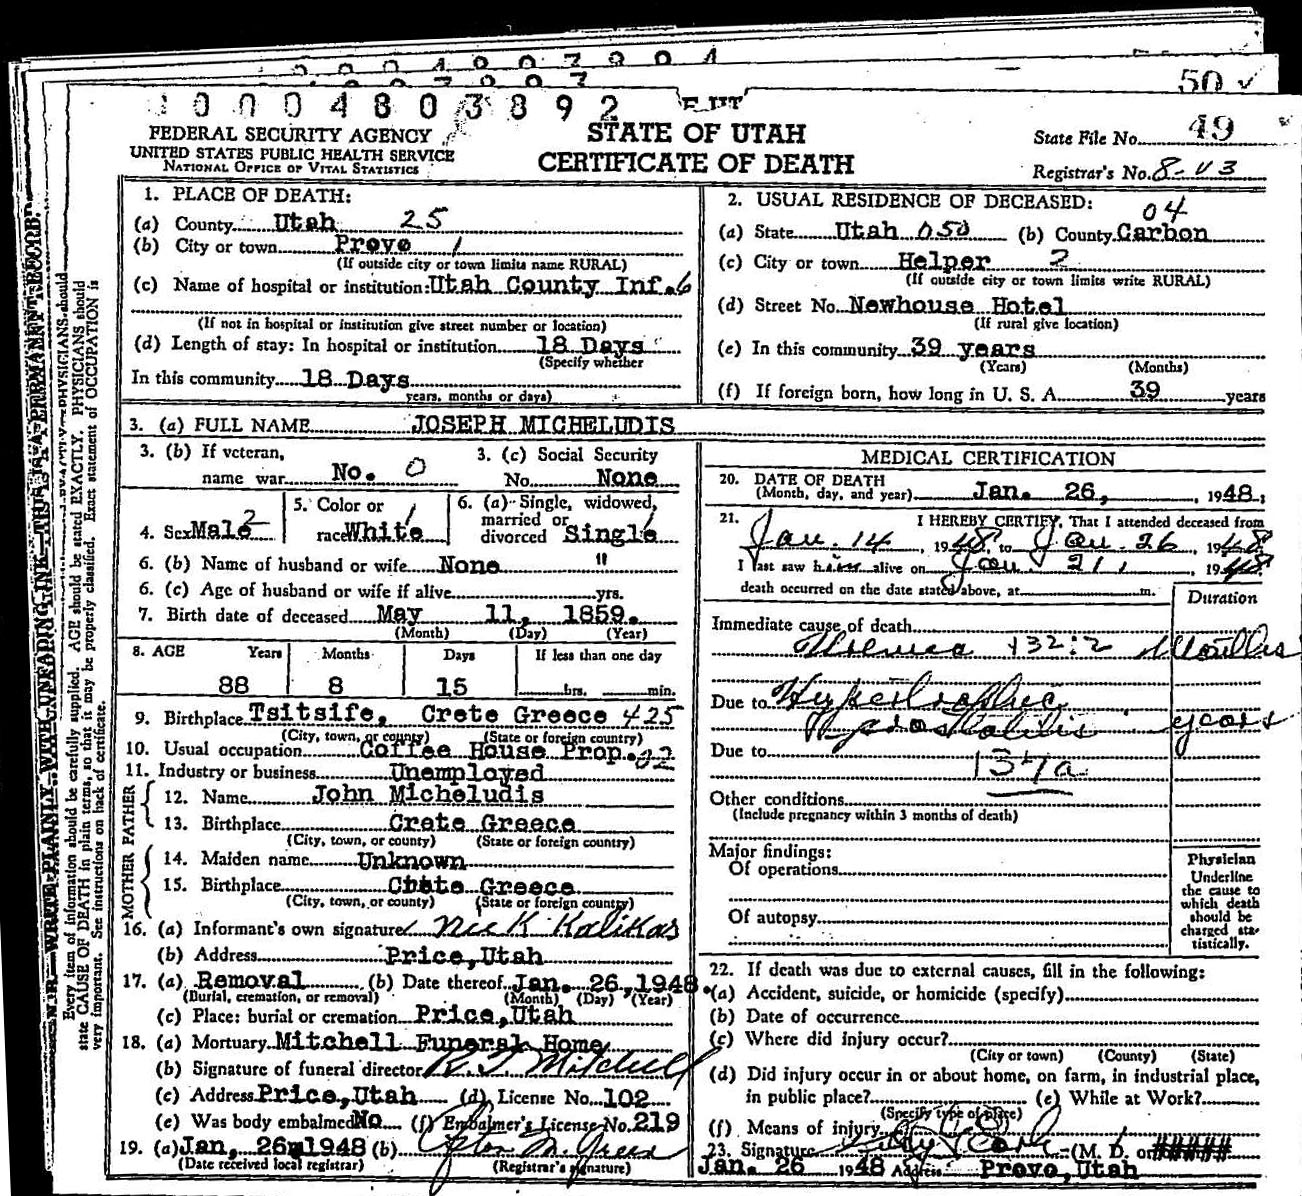 0 0 0 4 8 0 3 8 9 2
50 ✓
FEDERAL SECURITY AGENCY
UNITED STATES PUBLIC HEALTH SERVICE
NATIONAL OFFICE OF VITAL STATISTICS
STATE OF UTAH
CERTIFICATE OF DEATH
State File No. 49
Registrar's No. 8-
1. PLACE OF DEATH:
(a) County Utah 25
(b) City or town Provo 1
(If outside city or town limits name RURAL)
(c) Name of hospital or institution: Utah County Inf. 6
(If not in hospital or institution give street number or location)
(d) Length of stay: In hospital or institution 18 Days
(Specify whether
In this community 18 Days
years, months or days)
2. USUAL RESIDENCE OF DECEASED:
04
(a) State Utah 050 (b) County Carbon
(c) City or town Helper 2
(If outside city or town limits write RURAL)
(d) Street No. Newhouse Hotel
(If rural give location)
(e) In this community 39 years
(Years) (Months)
(f) If foreign born, how long in U. S. A. 39 years
3. (a) FULL NAME JOSEPH MICHELUDIS
3. (b) If veteran,
name war No. 0
3. (c) Social Security
No. None
4. Sex Male 2
5. Color or
race White 1
6. (a) Single, widowed,
married or
divorced Single 1
6. (b) Name of husband or wife None "
6. (c) Age of husband or wife if alive yrs.
7. Birth date of deceased May 11, 1859.
(Month) (Day) (Year)
8. AGE Years Months Days If less than one day
88 8 15 hrs. min.
9. Birthplace Tsitsife, Crete Greece 425
(City, town, or county) (State or foreign country)
10. Usual occupation Coffee House Prop. 22
11. Industry or business Unemployed
FATHER
12. Name John Micheludis
13. Birthplace Crete Greece
(City, town, or county) (State or foreign country)
MOTHER
14. Maiden name Unknown
15. Birthplace Crete Greece
(City, town, or county) (State or foreign country)
16. (a) Informant's own signature Nick Kalikas
(b) Address Price, Utah
17. (a) Removal (b) Date thereof Jan. 26, 1948.
(Burial, cremation, or removal) (Month) (Day) (Year)
(c) Place: burial or cremation Price, Utah
18. (a) Mortuary Mitchell Funeral Home
(b) Signature of funeral director R. T. Mitchell
(c) Address Price, Utah (d) License No. 102
(e) Was body embalmed No (f) Embalmer's License No. 219
19. (a) Jan, 26, 1948 (b) M. Green
(Date received local registrar) (Registrar's signature)
MEDICAL CERTIFICATION
20. DATE OF DEATH
(Month, day, and year) Jan. 26, , 1948,
21. I HEREBY CERTIFY, That I attended deceased from
Jan. 14, 1948, to Jan. 26, 1948
I last saw him alive on Jan. 21, 1948
death occurred on the date stated above, at m.
Duration
Immediate cause of death
132:2 Months
Due to Hypertrophic
prostatitis years
Due to
137a
Other conditions
(Include pregnancy within 3 months of death)
Major findings:
Of operations
Of autopsy
Physician
Underline
the cause to
which death
should be
charged sta-
tistically.
22. If death was due to external causes, fill in the following:
(a) Accident, suicide, or homicide (specify)
(b) Date of occurrence
(c) Where did injury occur?
(City or town) (County) (State)
(d) Did injury occur in or about home, on farm, in industrial place,
in public place? (e) While at Work?
(Specify type of place)
(f) Means of injury
23. Signature (M. D. or #####
Jan. 26 1948 Address Provo, Utah
N. B.—WRITE PLAINLY WITH UNFADING INK—THIS IS A PERMANENT RECORD.
Every item of information should be carefully supplied. AGE should be stated EXACTLY. PHYSICIANS should
state CAUSE OF DEATH in plain terms, so that it may be properly classified. Exact statement of OCCUPATION is
very important. See instructions on back of certificate.